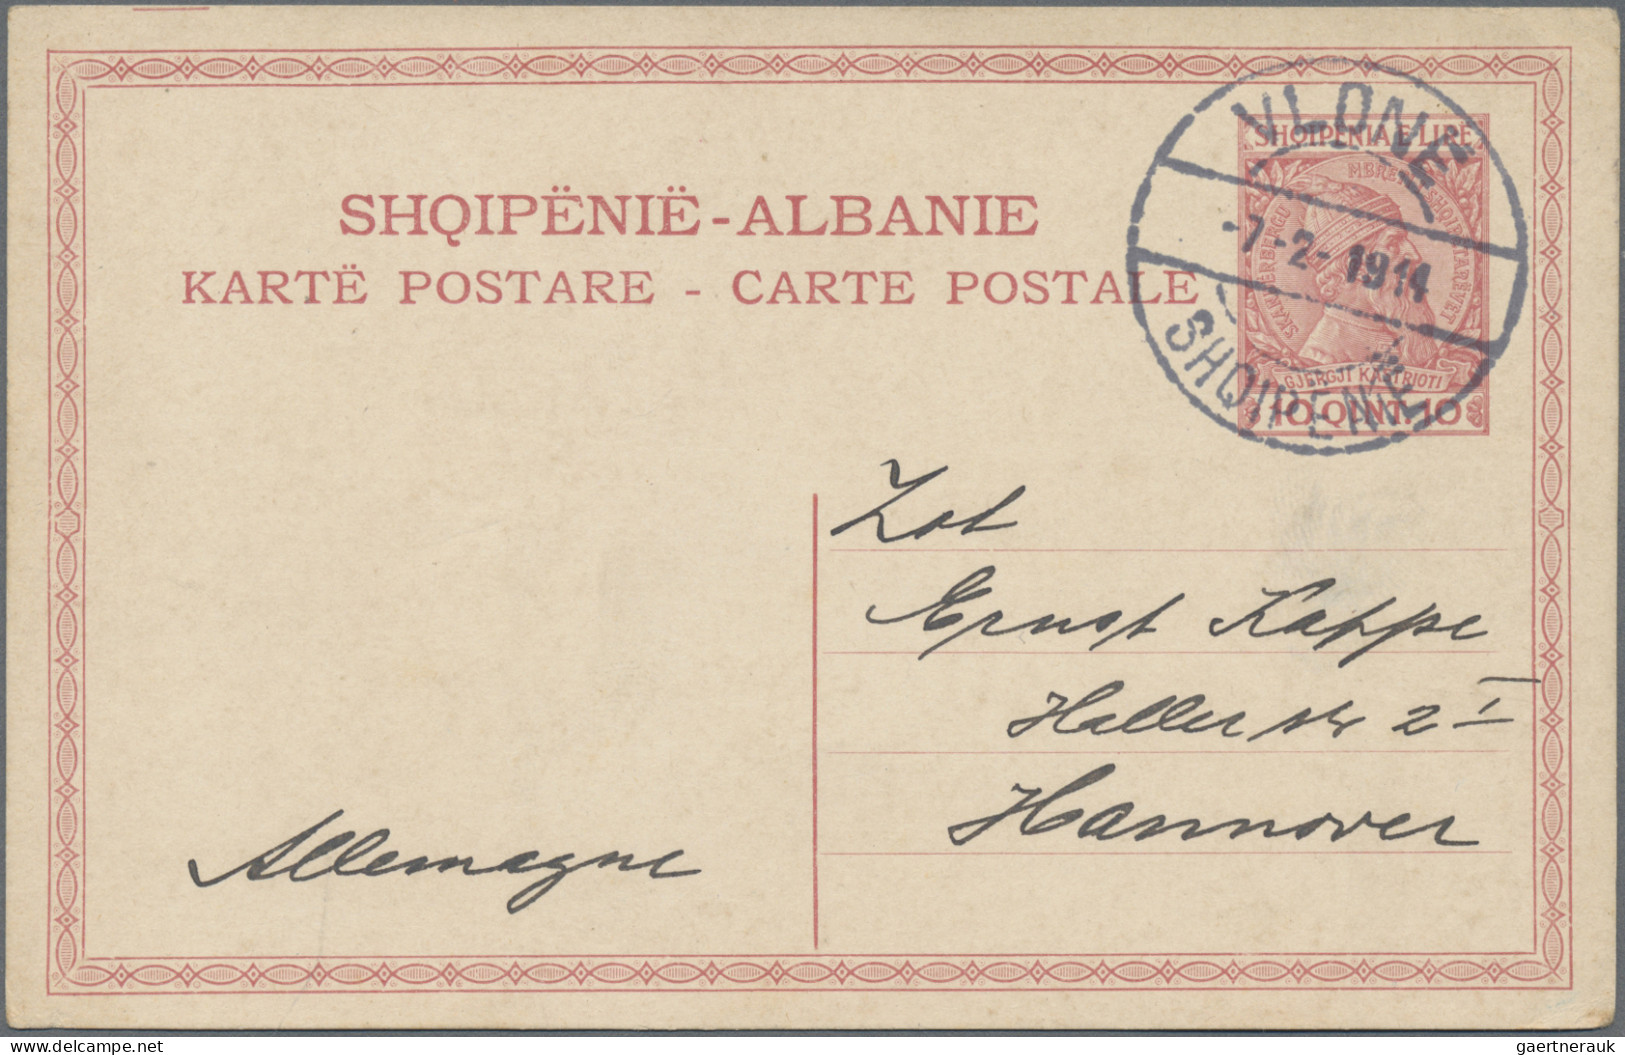 SHQIPËNIË - ALBANIE
KARTË POSTARE - CARTE POSTALE
SHQIPËNIA E LIRË
SKANDERBERGU
GJERGJ KASTRIOTI
10 QINT. 10
VLONË
-7.-2- 1914
SHQIPENIE
Zot
Ernst Kappe
Haller str 2 I
Hannover
Allemagne
www.delcampe.net
gaertnerauk